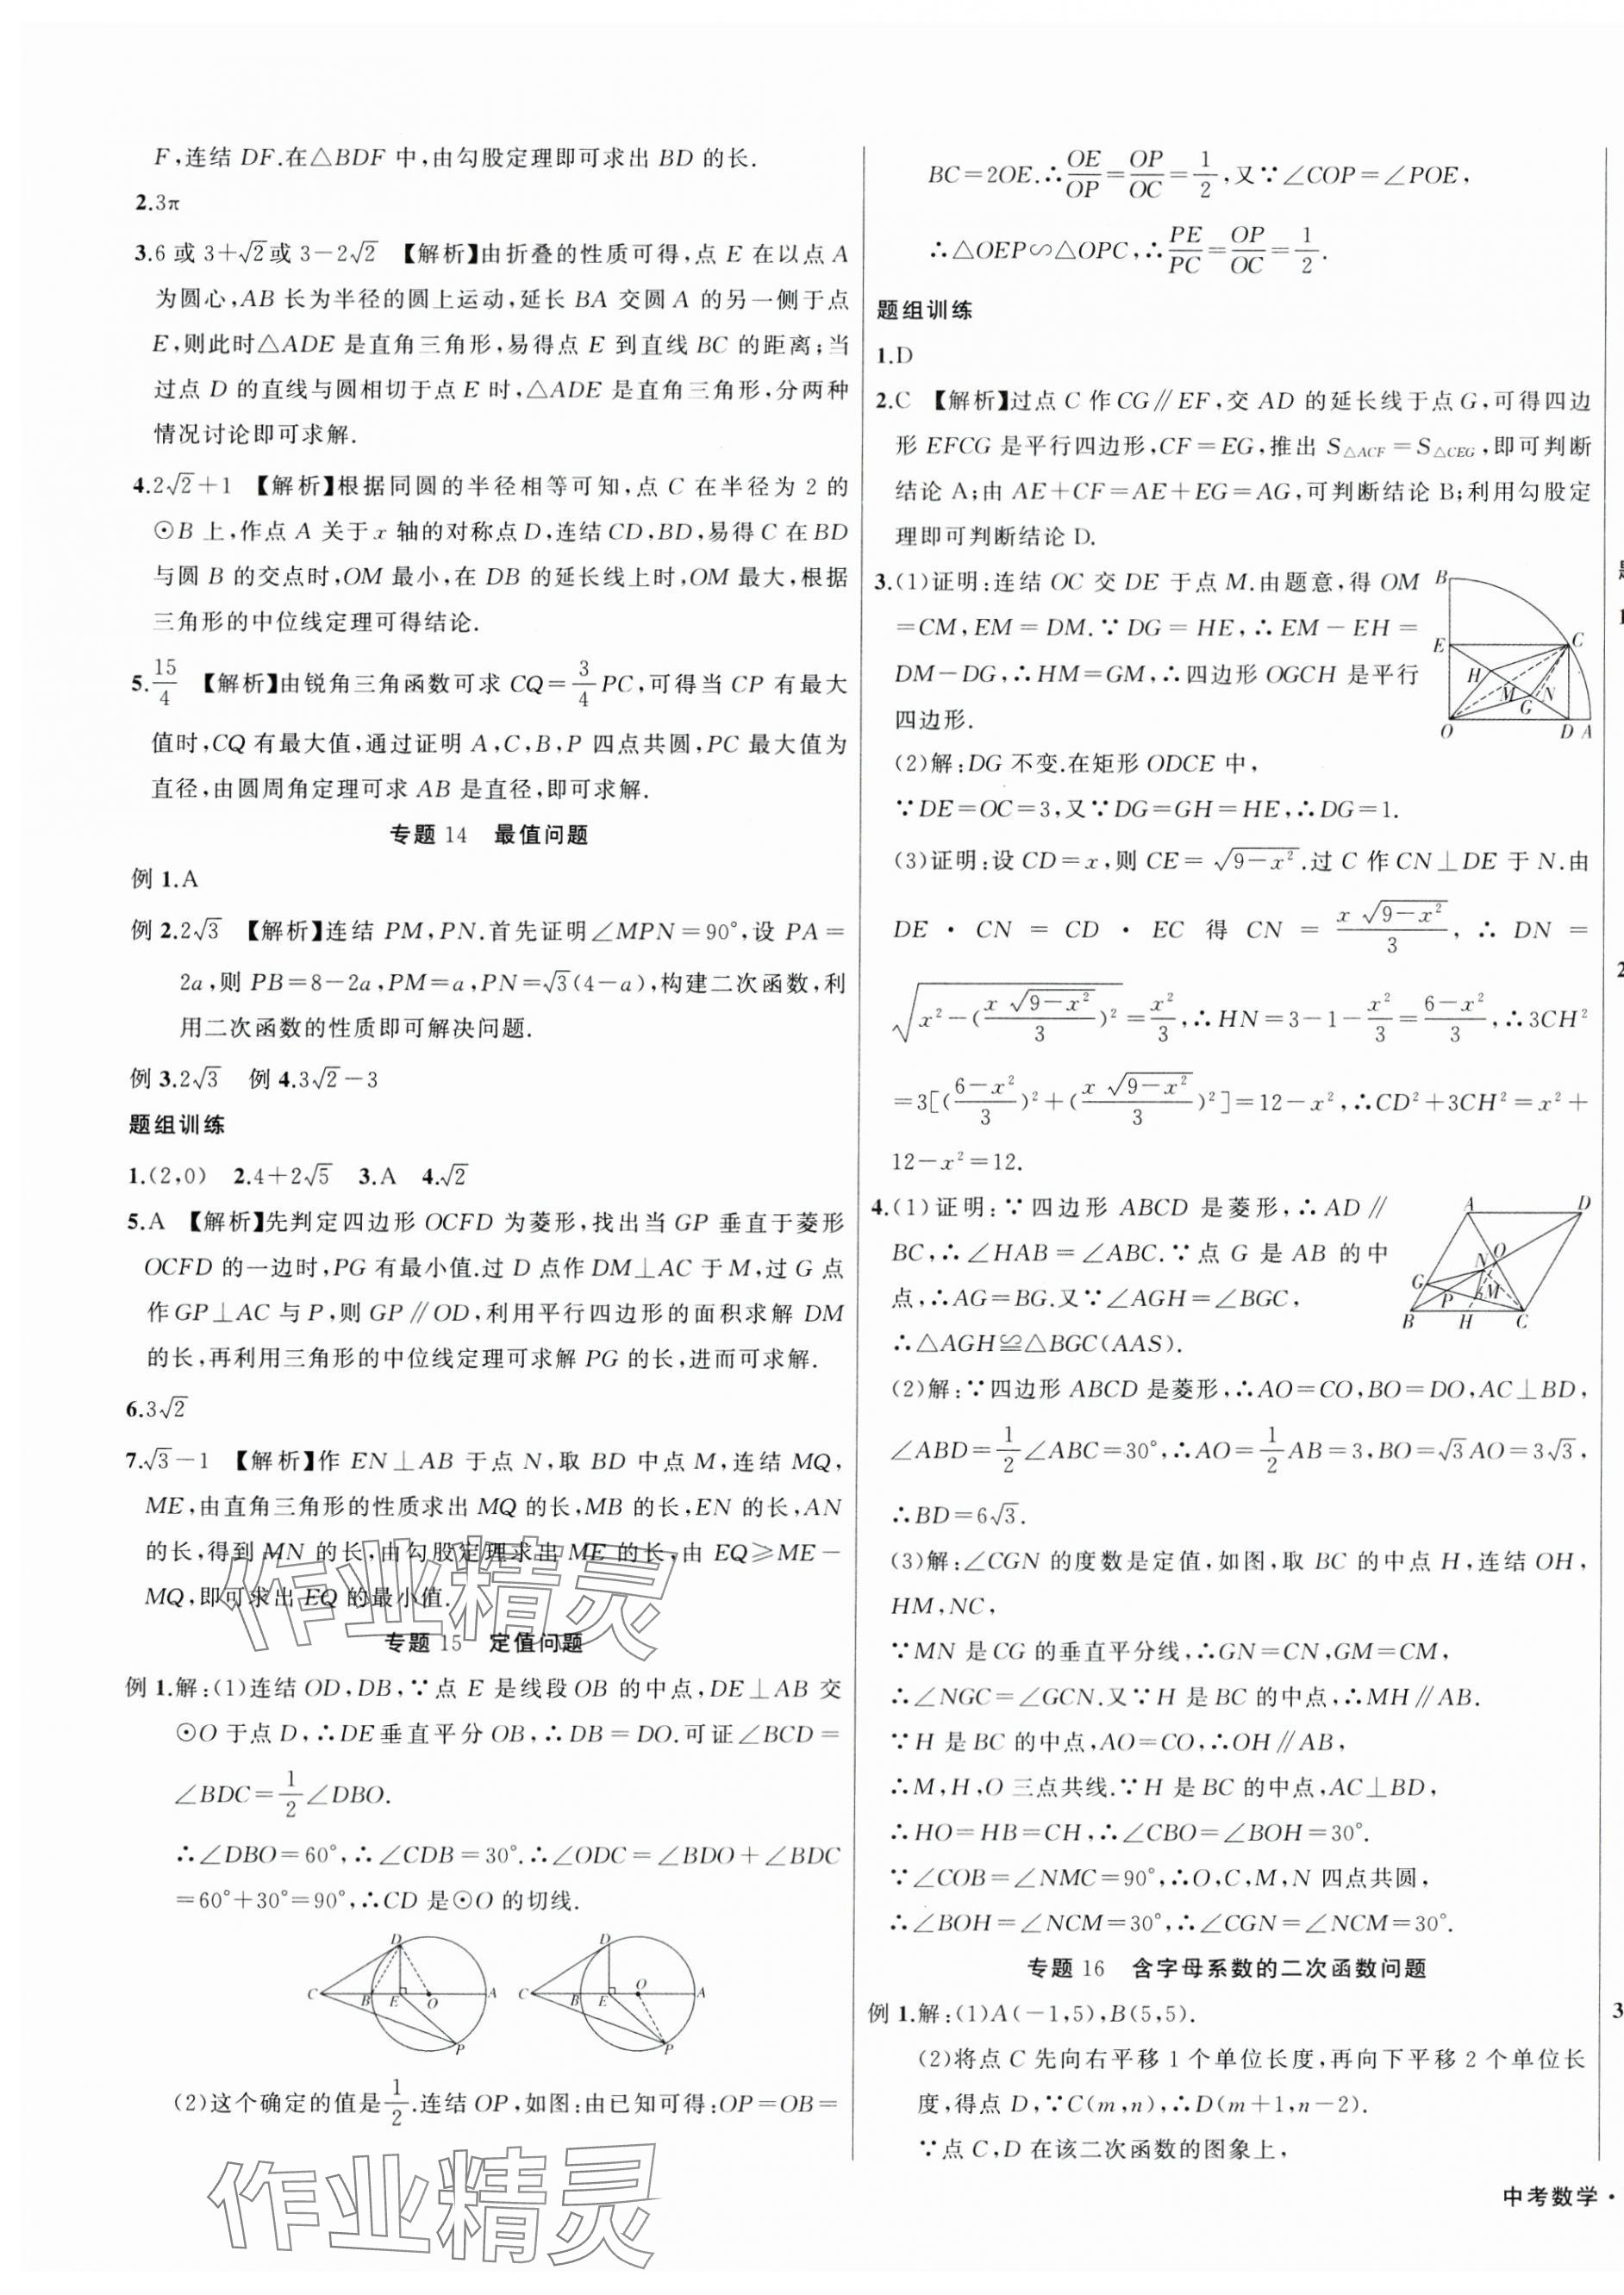 F,连结 DF.在△BDF 中,由勾股定理即可求出 BD 的长.
2.3π
3.6 或 3+√2或 3-2√2 【解析】由折叠的性质可得,点 E 在以点 A
为圆心,AB 长为半径的圆上运动,延长 BA 交圆 A 的另一侧于点
E,则此时△ADE 是直角三角形,易得点 E 到直线 BC 的距离;当
过点 D 的直线与圆相切于点 E 时,△ADE 是直角三角形,分两种
情况讨论即可求解.
4.2√2+1 【解析】根据同圆的半径相等可知,点 C 在半径为 2 的
⊙B 上,作点 A 关于 x 轴的对称点 D,连结 CD,BD,易得 C 在 BD
与圆 B 的交点时,OM 最小,在 DB 的延长线上时,OM 最大,根据
三角形的中位线定理可得结论.
5.15/4 【解析】由锐角三角函数可求 CQ=3/4PC,可得当 CP 有最大
值时,CQ 有最大值,通过证明 A,C,B,P 四点共圆,PC 最大值为
直径,由圆周角定理可求 AB 是直径,即可求解.
专题 14 最值问题
例 1.A
例 2.2√3 【解析】连结 PM,PN.首先证明∠MPN=90°,设 PA=
2a,则 PB=8-2a,PM=a,PN=√3(4-a),构建二次函数,利
用二次函数的性质即可解决问题.
例 3.2√3 例 4.3√2-3
题组训练
1.(2,0) 2.4+2√5 3.A 4.√2
5.A 【解析】先判定四边形 OCFD 为菱形,找出当 GP 垂直于菱形
OCFD 的一边时,PG 有最小值.过 D 点作 DM⊥AC 于 M,过 G 点
作 GP⊥AC 与 P,则 GP∥OD,利用平行四边形的面积求解 DM
的长,再利用三角形的中位线定理可求解 PG 的长,进而可求解.
6.3√2
7.√3-1 【解析】作 EN⊥AB 于点 N,取 BD 中点 M,连结 MQ,
ME,由直角三角形的性质求出 MQ 的长,MB 的长,EN 的长,AN
的长,得到 MN 的长,由勾股定理求出 ME 的长,由 EQ≥ME-
MQ,即可求出 EQ 的最小值.
专题 15 定值问题
例 1.解:(1)连结 OD,DB,∵点 E 是线段 OB 的中点,DE⊥AB 交
⊙O 于点 D,∴DE 垂直平分 OB,∴DB=DO.可证∠BCD=
∠BDC=1/2∠DBO.
∴∠DBO=60°,∴∠CDB=30°.∴∠ODC=∠BDO+∠BDC
=60°+30°=90°,∴CD 是⊙O 的切线.
D C B E O A P
D C B E O A P
(2)这个确定的值是1/2.连结 OP,如图:由已知可得:OP=OB=
作业精灵
作业精灵
BC=2OE.∴OE/OP=OP/OC=1/2,又∵∠COP=∠POE,
∴△OEP∽△OPC,∴PE/PC=OP/OC=1/2.
题组训练
1.D
2.C 【解析】过点 C 作 CG∥EF,交 AD 的延长线于点 G,可得四边
形 EFCG 是平行四边形,CF=EG,推出 S△ACF=S△CEG,即可判断
结论 A;由 AE+CF=AE+EG=AG,可判断结论 B;利用勾股定
理即可判断结论 D.
3.(1)证明:连结 OC 交 DE 于点 M.由题意,得 OM
=CM,EM=DM.∵DG=HE,∴EM-EH=
DM-DG,∴HM=GM,∴四边形 OGCH 是平行
四边形.
B E C H M N G O D A
(2)解:DG 不变.在矩形 ODCE 中,
∵DE=OC=3,又∵DG=GH=HE,∴DG=1.
(3)证明:设 CD=x,则 CE=√(9-x²).过 C 作 CN⊥DE 于 N.由
DE·CN=CD·EC 得 CN=x√(9-x²)/3,∴DN=
√(x²-(x√(9-x²)/3)²)=x²/3,∴HN=3-1-x²/3=(6-x²)/3,∴3CH²
=3[((6-x²)/3)²+(x√(9-x²)/3)²]=12-x²,∴CD²+3CH²=x²+
12-x²=12.
4.(1)证明:∵四边形 ABCD 是菱形,∴AD∥
BC,∴∠HAB=∠ABC.∵点 G 是 AB 的中
点,∴AG=BG.又∵∠AGH=∠BGC,
∴△AGH≌△BGC(AAS).
A D O N G P M B H C
(2)解:∵四边形 ABCD 是菱形,∴AO=CO,BO=DO,AC⊥BD,
∠ABD=1/2∠ABC=30°,∴AO=1/2AB=3,BO=√3AO=3√3,
∴BD=6√3.
(3)解:∠CGN 的度数是定值,如图,取 BC 的中点 H,连结 OH,
HM,NC,
∵MN 是 CG 的垂直平分线,∴GN=CN,GM=CM,
∴∠NGC=∠GCN.又∵H 是 BC 的中点,∴MH∥AB.
∵H 是 BC 的中点,AO=CO,∴OH∥AB,
∴M,H,O 三点共线.∵H 是 BC 的中点,AC⊥BD,
∴HO=HB=CH,∴∠CBO=∠BOH=30°.
∵∠COB=∠NMC=90°,∴O,C,M,N 四点共圆,
∴∠BOH=∠NCM=30°,∴∠CGN=∠NCM=30°.
专题 16 含字母系数的二次函数问题
例 1.解:(1)A(-1,5),B(5,5).
(2)将点 C 先向右平移 1 个单位长度,再向下平移 2 个单位长
度,得点 D,∵C(m,n),∴D(m+1,n-2).
∵点 C,D 在该二次函数的图象上,
中考数学·